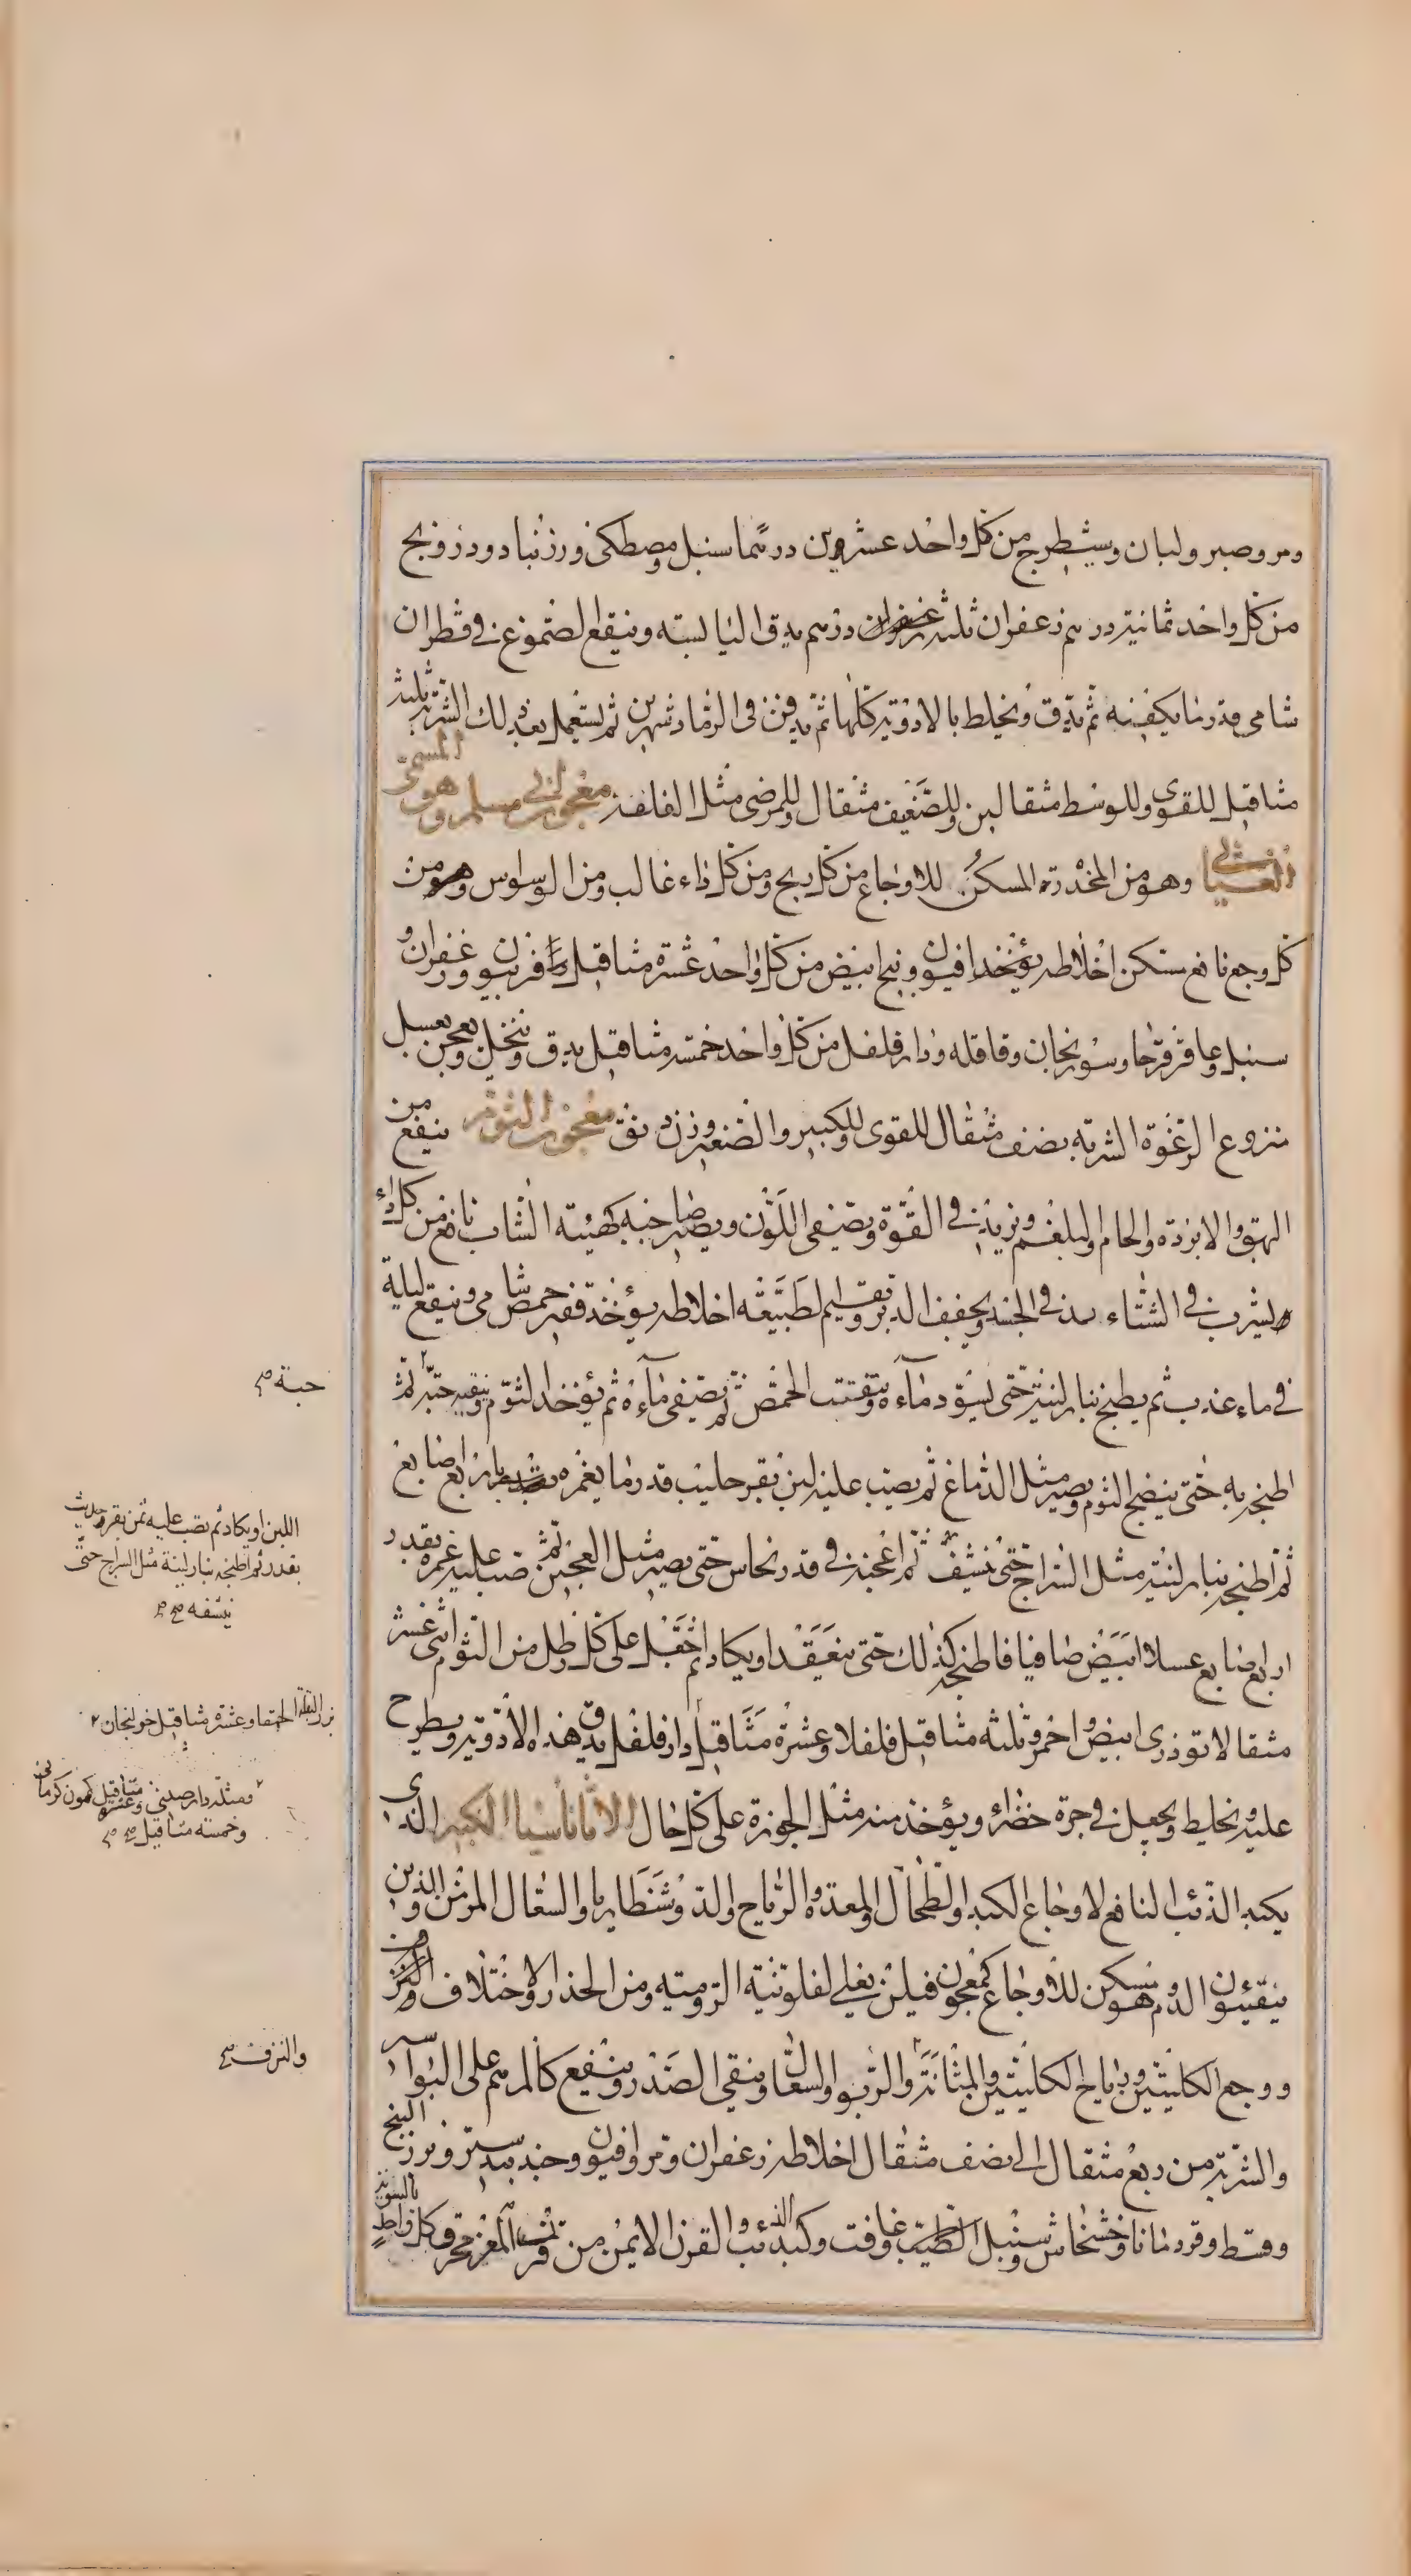 ومر وصبر ولبان وشيطرج من كل واحد عشرين درهما سنبل ومصطكى وزرنباد ودرونج
من كل واحد ثمانية درهم زعفران ثلثة درهم يدق اليابسة وينقع الصموغ في قطران
شامي قدر ما يكفيه ثم يدق ويخلط بالادوية كلها ثم يدفن في الرماد شهرين ثم يستعمل بعد ذلك الشربة ثلثة
مثاقيل للقوى وللوسط مثقالين وللضعيف مثقال وللمرضى مثل الفلفلة معجون لابي مسلم وهو المسمى
الغياثي وهو من المخدرة المسكن للاوجاع من كل ريح ومن كل داء غالب ومن الوسواس ومن
كل وجع نافع مسكن اخلاطه يؤخذ افيون وبنج ابيض من كل واحد عشرة مثاقيل فربيون وزعفران و
سنبل وعاقرقرحا وسورنجان وقاقله ودارفلفل من كل واحد خمسة مثاقيل يدق وينخل ويعجن بعسل
منزوع الرغوة الشربة نصف مثقال للقوى وللكبير والصغير وزن دنق معجون الثوم ينفع من
البهق والابردة والخام والبلغم ويزيد في القوة ويصفى اللون ويصير صاحبه كهيئة الشاب نافع من كل داء
يشرب في الشتاء في الجسد ويجفف الدبر ويقيم الطبيعة اخلاطه يؤخذ قفيز حمص شامى وينقع ليلة
في ماء عذب ثم يطبخ بنار لينة حتى يسود ماءه ويتفتت الحمص ثم يصفى ماءه ثم يؤخذ الثوم وينقيه حبة ثم
اطبخه به حتى ينضج الثوم ويصير مثل الدماغ ثم يصب عليه لبن بقر حليب قدر ما يغمره باربع اصابع
ثم اطبخه بنار لينة مثل السراج حتى ينشف ثم اعجنه في قدر نحاس حتى يصير مثل العجين ثم صب عليه غمره بقدر
اربع اصابع عسلا ابيض صافيا فاطبخه كذلك حتى ينعقد او يكاد ثم على كل رطل من الثوم اثنى عشر
مثقالا توذرى ابيض واحمر وثلثه مثاقيل فلفلا وعشرة مثاقيل دارفلفل يدق هذه الادوية ويطرح
عليه ويخلط ويجعل في جرة خضراء ويؤخذ منه مثل الجوزة على كل حال الاثاناسيا الكبير الذى
بكبد الذئب النافع لاوجاع الكبد والطحال والمعدة والرياح والدوسنطاريا والسعال المزمن والذين
يتقيئون الدم مسكن للاوجاع كمعجون فيلن يعلى لفلونية الرومية ومن الخدر والاختلاف ومن
ووجع الكليتين ورياح الكليتين والمثانة والربو والسعال وينقي الصدر وينفع كالمرهم على البواسر
والشربة من ربع مثقال الى نصف مثقال اخلاطه زعفران ومر وافيون وجندبيدستر وبزر البنج
وقسط وقردمانا وخشخاش وسنبل الطيب وغافت وكبد الذئب والقرن الايمن من قرنى المعز محرق كل واحد بالسوية
حبة صح
اللبن او يكاد ثم يصب عليه سمن بقر حديث
بقدره ثم اطبخه بنار لينة مثل السراج حتى
ينشفه صح
بزر البقلة الحمقا وعشرة مثاقيل خولنجان
ومثله دارصينى وعشرة مثاقيل كمون كرمانى
وخمسة مثاقيل صح
والنزف صح